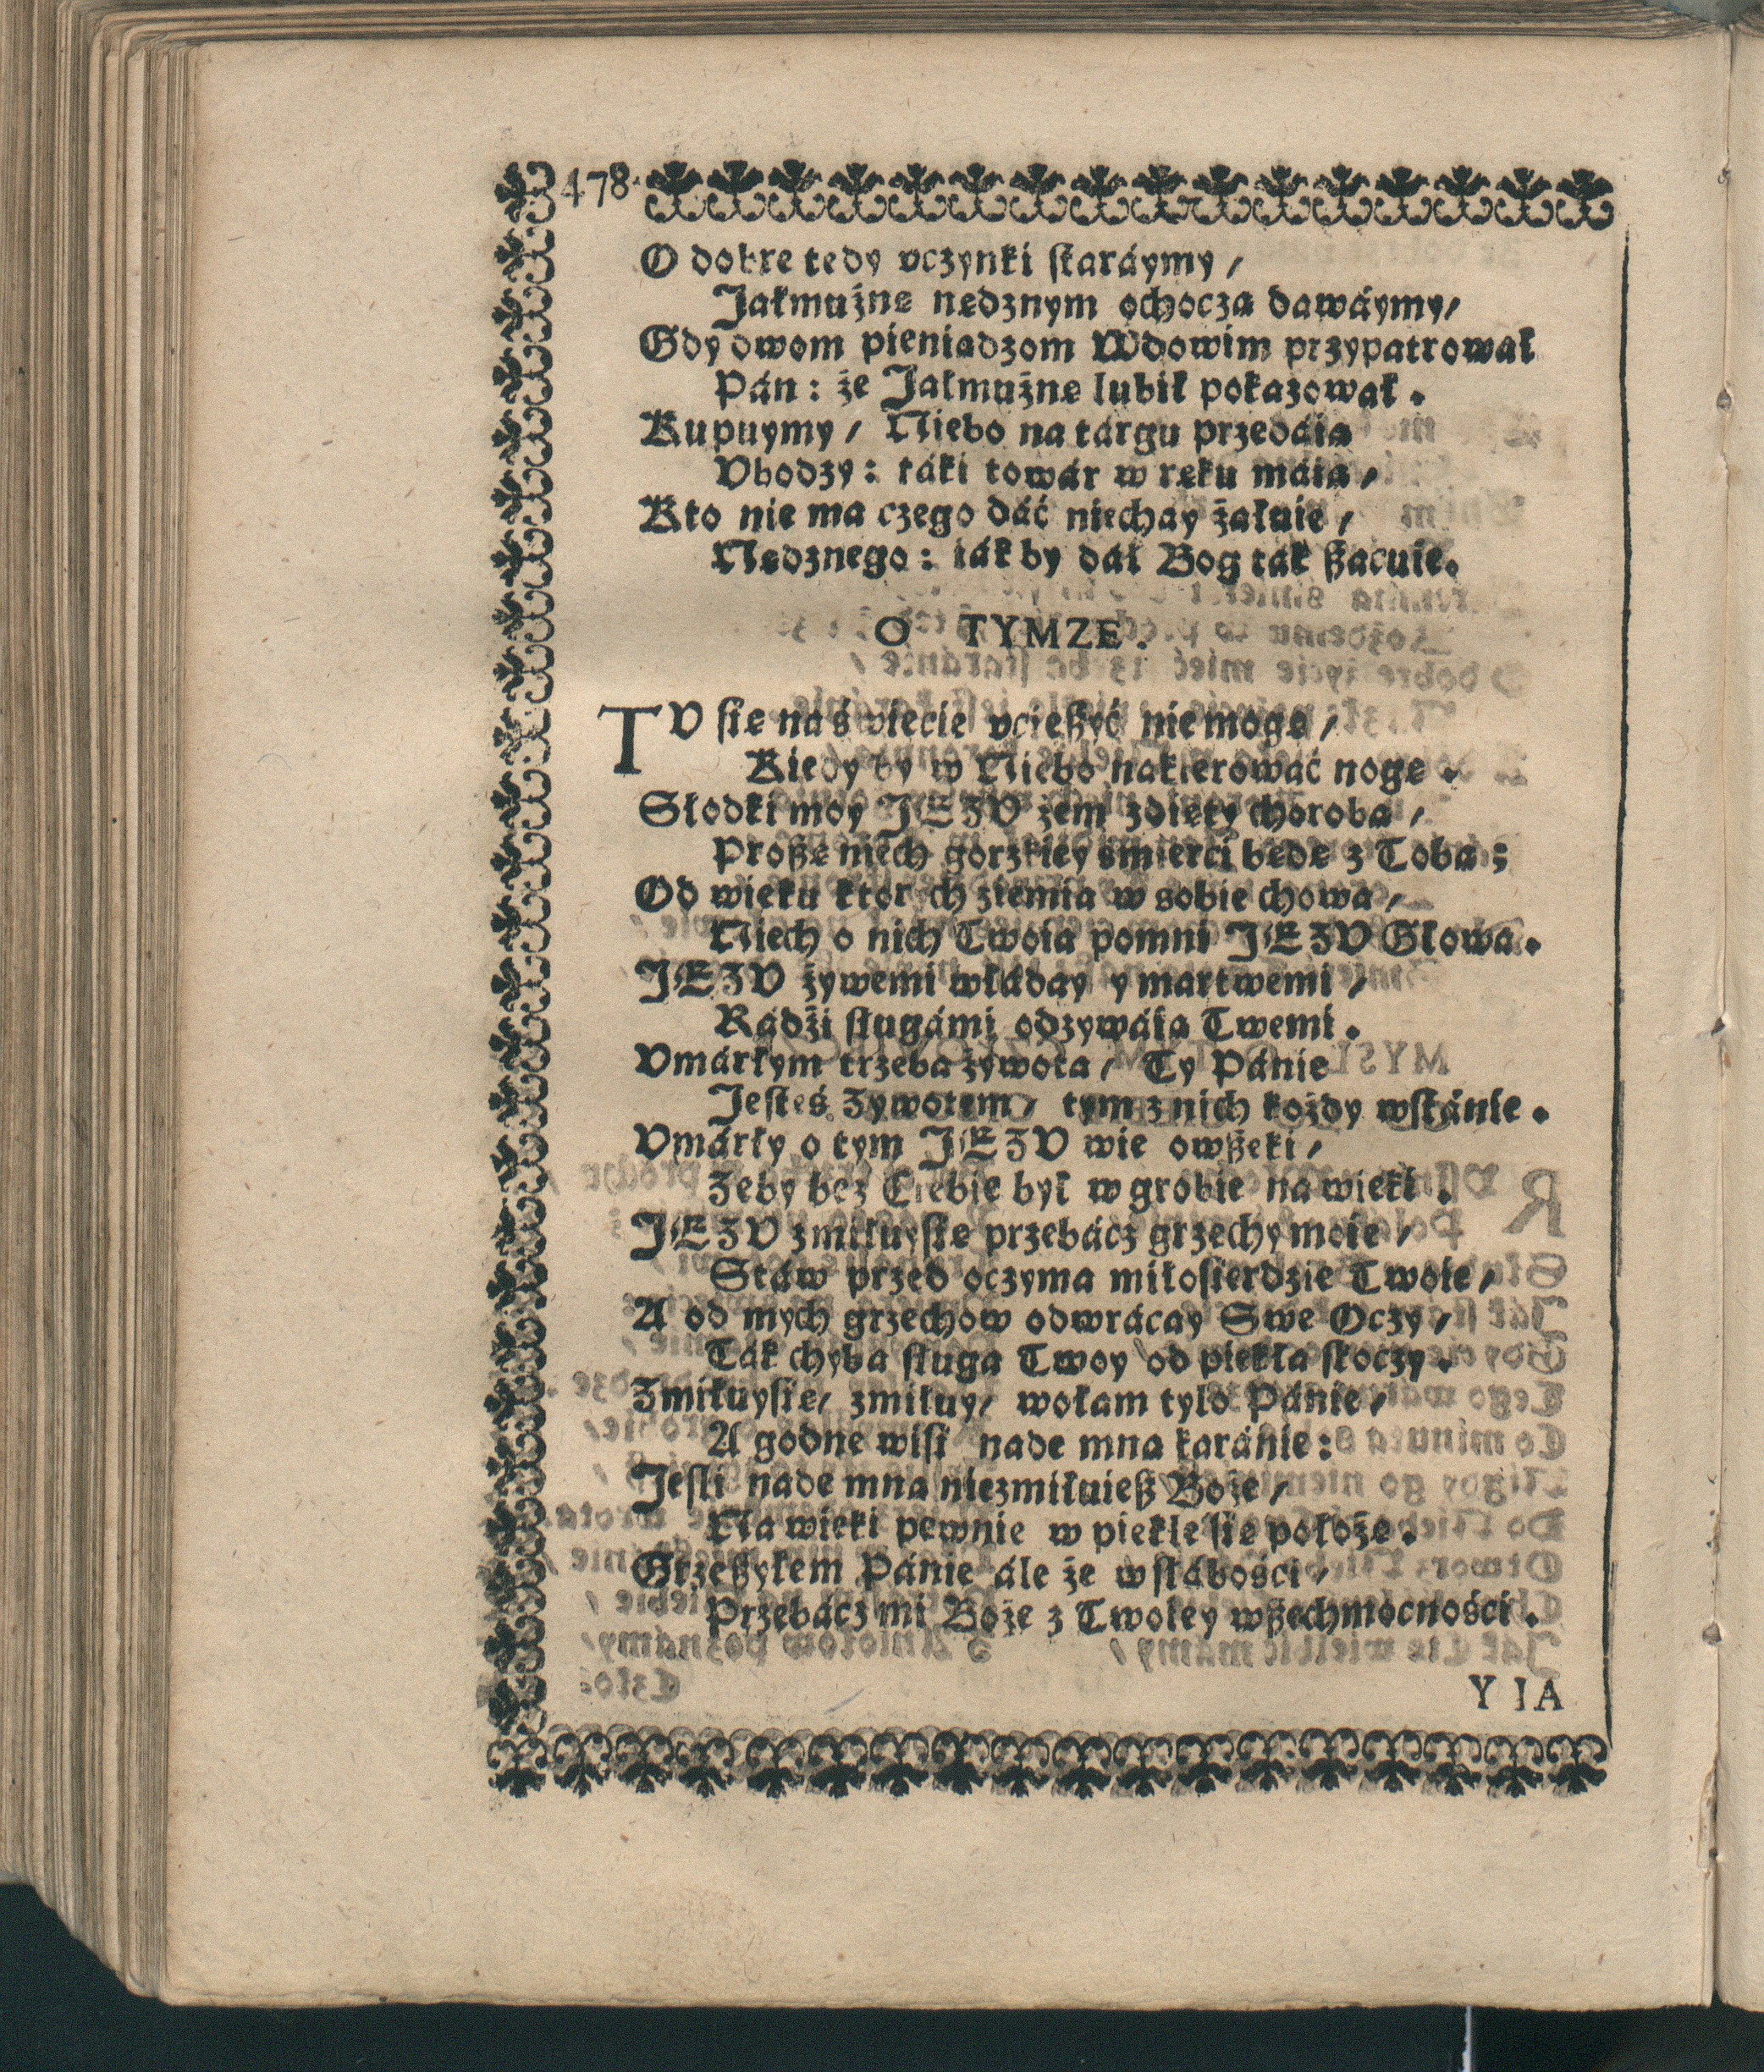 478.
O dobre tedy vczynki ſtaráymy /
Jałmużnę nędznym ochoczą dawáymy /
Gdy dwom pieniądzom Wdowim przypatrował
Pán : że Jałmużnę lubił pokazował .
Kupuymy / Niebo na tárgu przedáią
Vbodzy : táki towár w ręku máią /
Kto nie ma czego dáć niechay żałuie /
Nędznego : iák by dáł Bog ták ßacuie .
O TYMZE .
TV ſię na świecie vcießyć nie mogę /
Kiedy by w Niebo nakierować nogę .
Słodki moy JEZV żem zdięty chorobą /
Proßę niech gorzkiey śmierci będę z Tobą ;
Od wieku ktorych ziemia w sobie chowa /
Niech o nich Twoia pomni JEZV Głowa .
JEZV żywemi właday y martwemi /
Rádźi ſługámi odzywáią Twemi .
Vmárłym trzeba żywota / Ty Pánie
Jeſteś Zywotem / tym z nich kożdy wſtánie .
Vmárły o tym JEZV wie owßeki /
Zeby bez Ciebie był w grobie na wieki .
JEZV zmiłuyſię przebácz grzechy moie /
Stáw przed oczyma miłoſierdzie Twoie /
A od mych grzechow odwrácay Swe Oczy /
Ták chyba ſługa Twoy od piekła ſkoczy .
Zmiłuyſię / zmiłuy / wołam tylo Pánie /
A godne wiſi nade mną karánie :
Jeſli nade mną niezmiłuieß Boże /
Na wieki pewnie w piekle ſię położę .
Grzeßyłem Pánie ále że w ſłábości /
Przebácz mi Boże z Twoiey wßechmocności .
Y IA